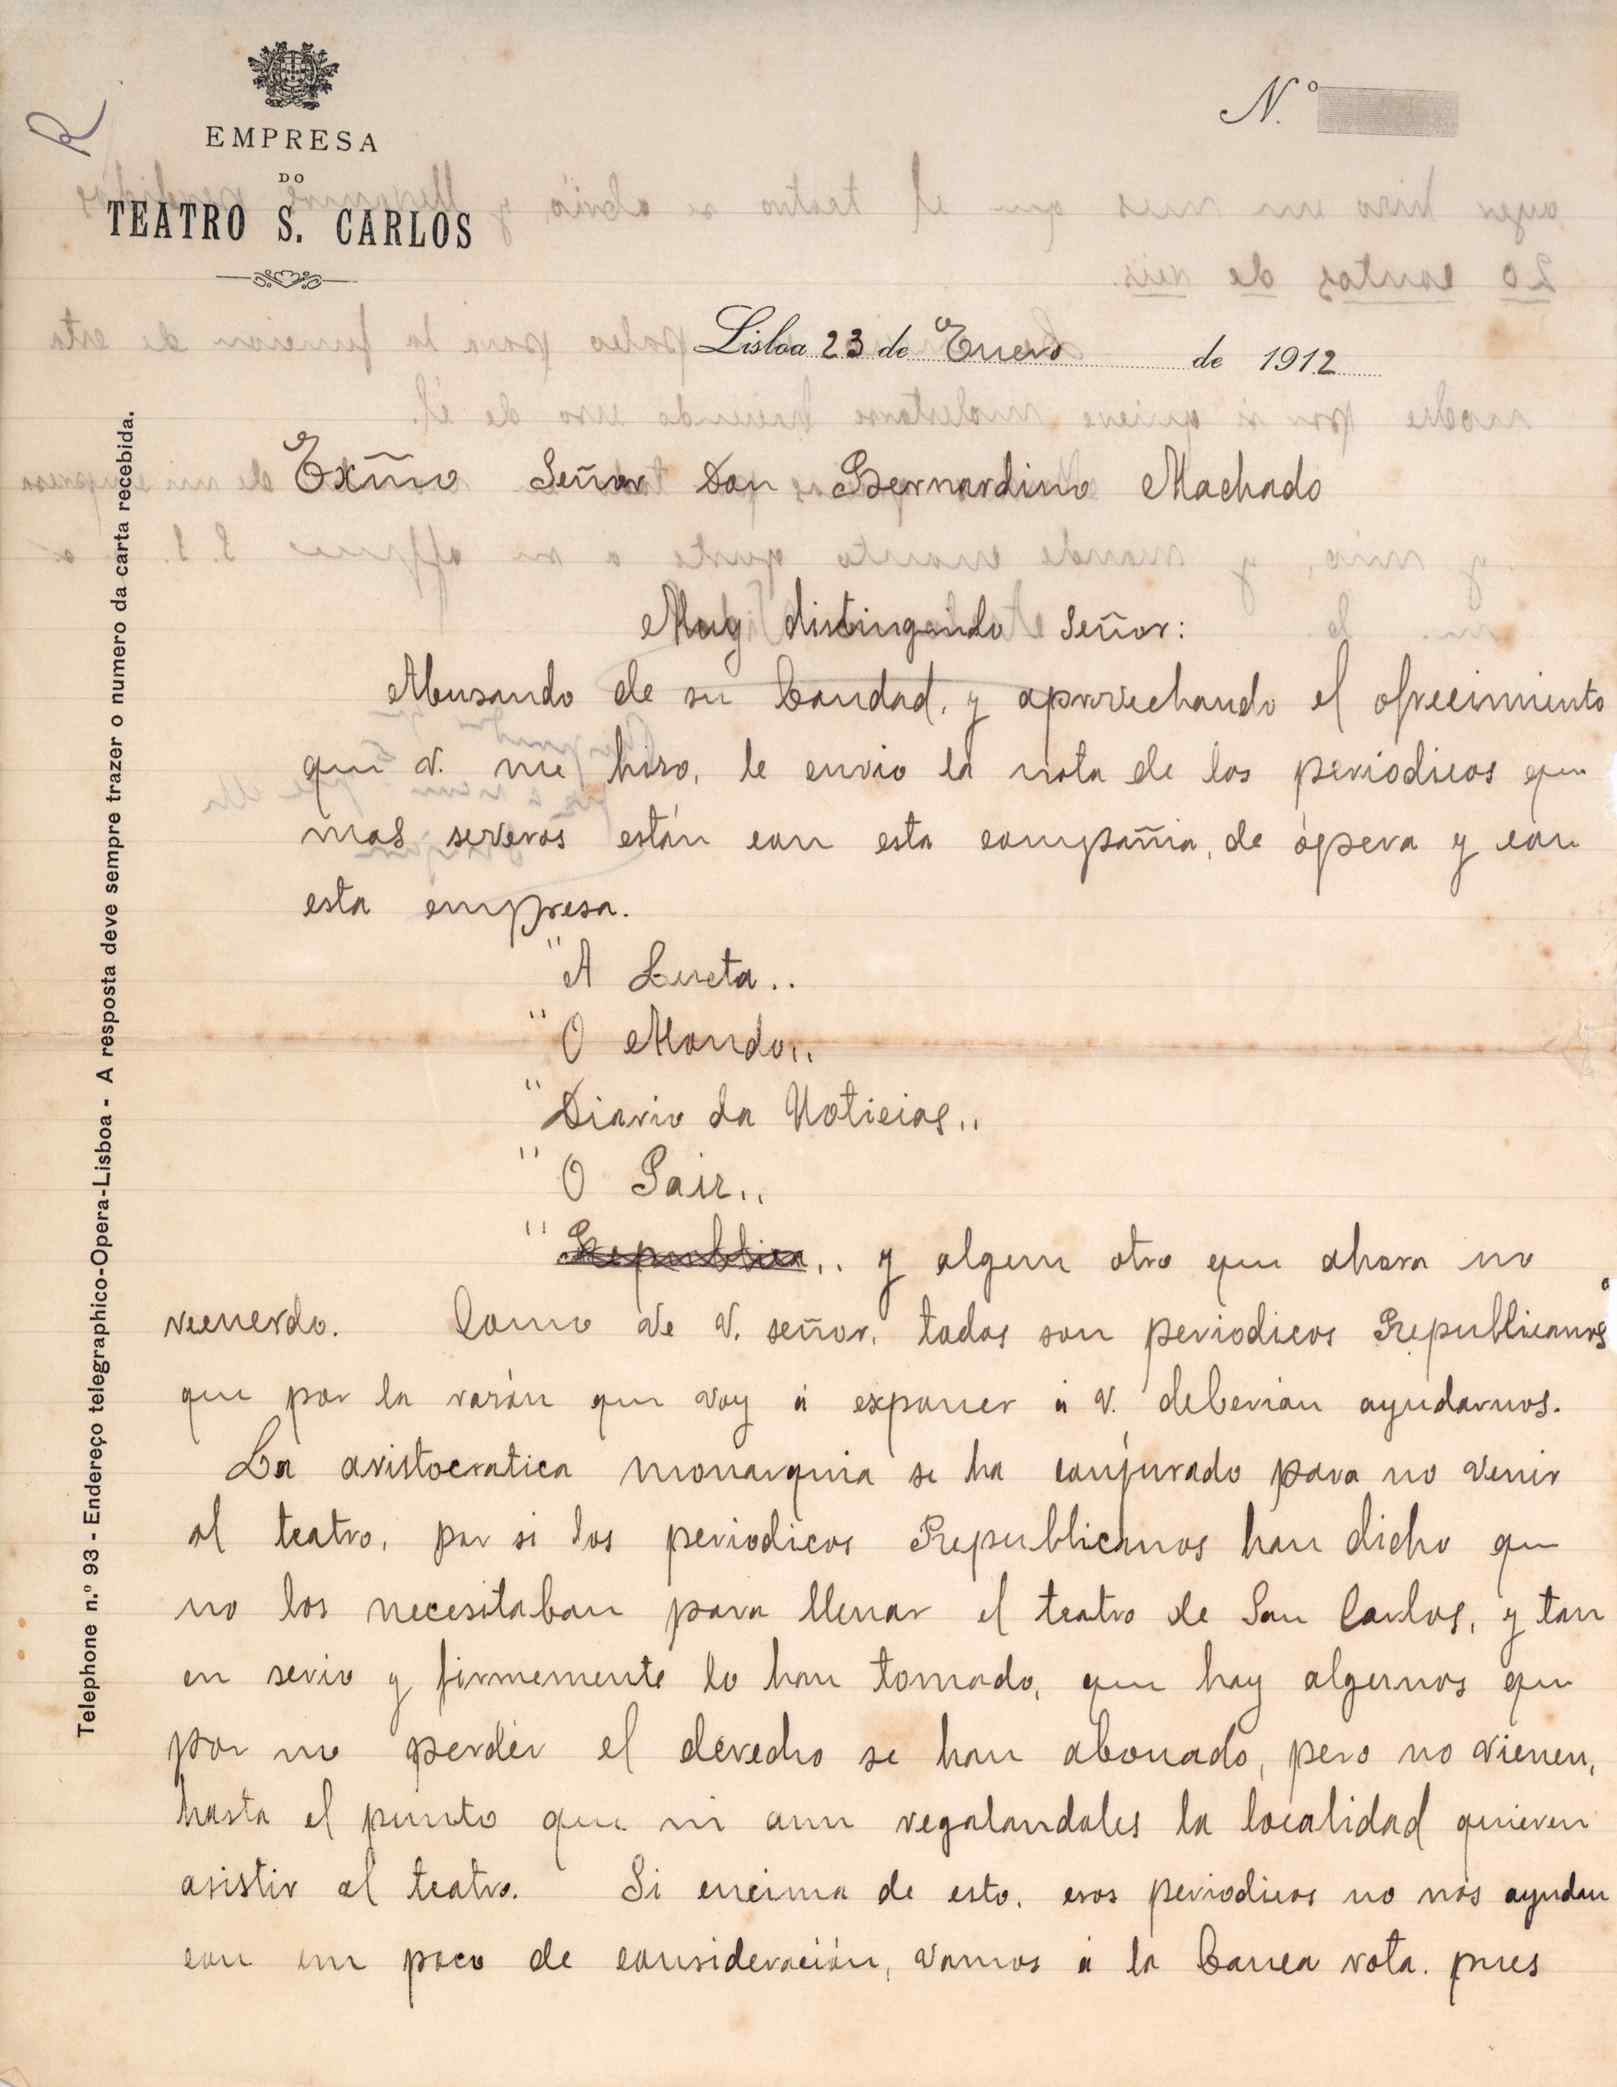 R
EMPRESA
DO
TEATRO S. CARLOS
N.º
Lisboa 23 de Enero de 1912
Exm̃o Señor Don Bernardino Machado
Muy distinguido Señor:
Abusando de su bondad, y aprovechando el ofrecimiento
que V. me hizo, le envio la nota de los periodicos que
mas severos están con esta compañia, de ópera y con
esta empresa.
"A Lucta..
"O Mondo..
"Diario da Noticias..
"O Paiz..
"Republica.. y algun otro que ahora no
recuerdo. Como ve V. señor, todos son periodicos Republicanos
que por la razón que voy á exponer á V. deberian ayudarnos.
La aristocratica monarquia se ha conjurado para no venir
al teatro, por si los periodicos Republicanos han dicho que
no los necesitaban para llenar el teatro de San Carlos, y tan
en serio y firmemente lo han tomado, que hay algunos que
por no perder el derecho se han abonado, pero no vienen,
hasta el punto que ni aun regalandoles la localidad quieren
asistir al teatro. Si encima de esto, esos periodicos no nos ayudan
con un poco de consideración, vamos á la banca rota. pues
Telephone n.º 93 - Endereço telegraphico-Opera-Lisboa - A resposta deve sempre trazer o numero da carta recebida.